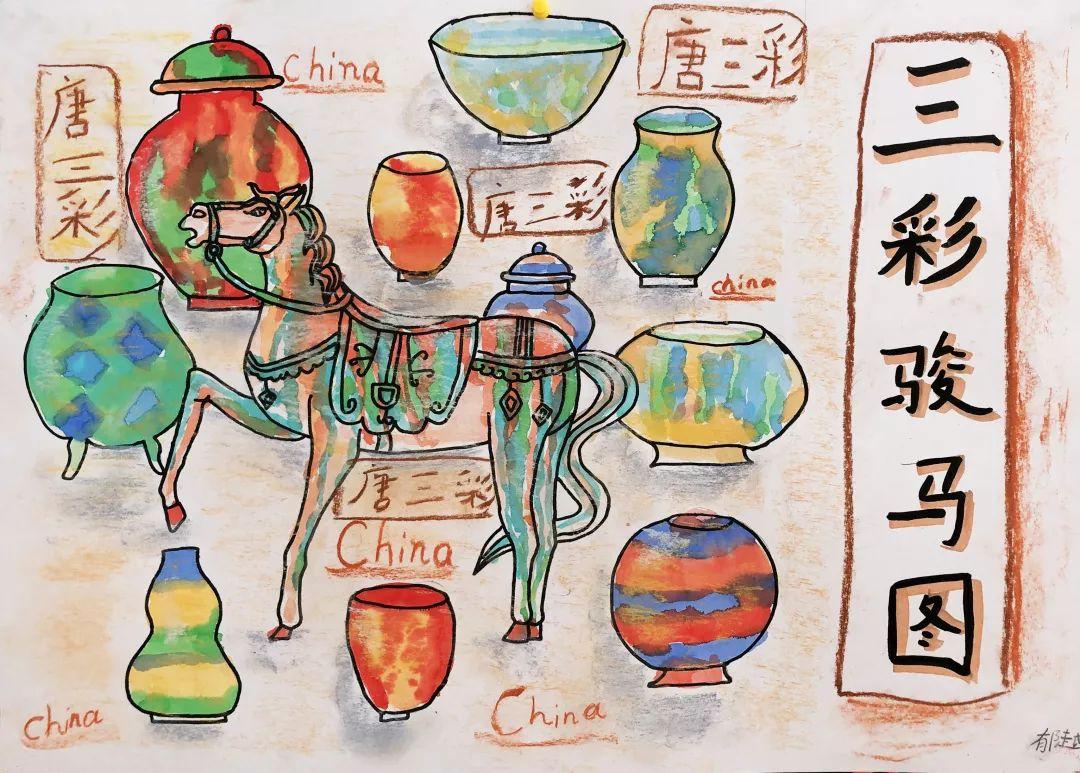 唐三彩
China
唐三彩
唐三彩
china
唐三彩
China
China
China
三彩骏马图